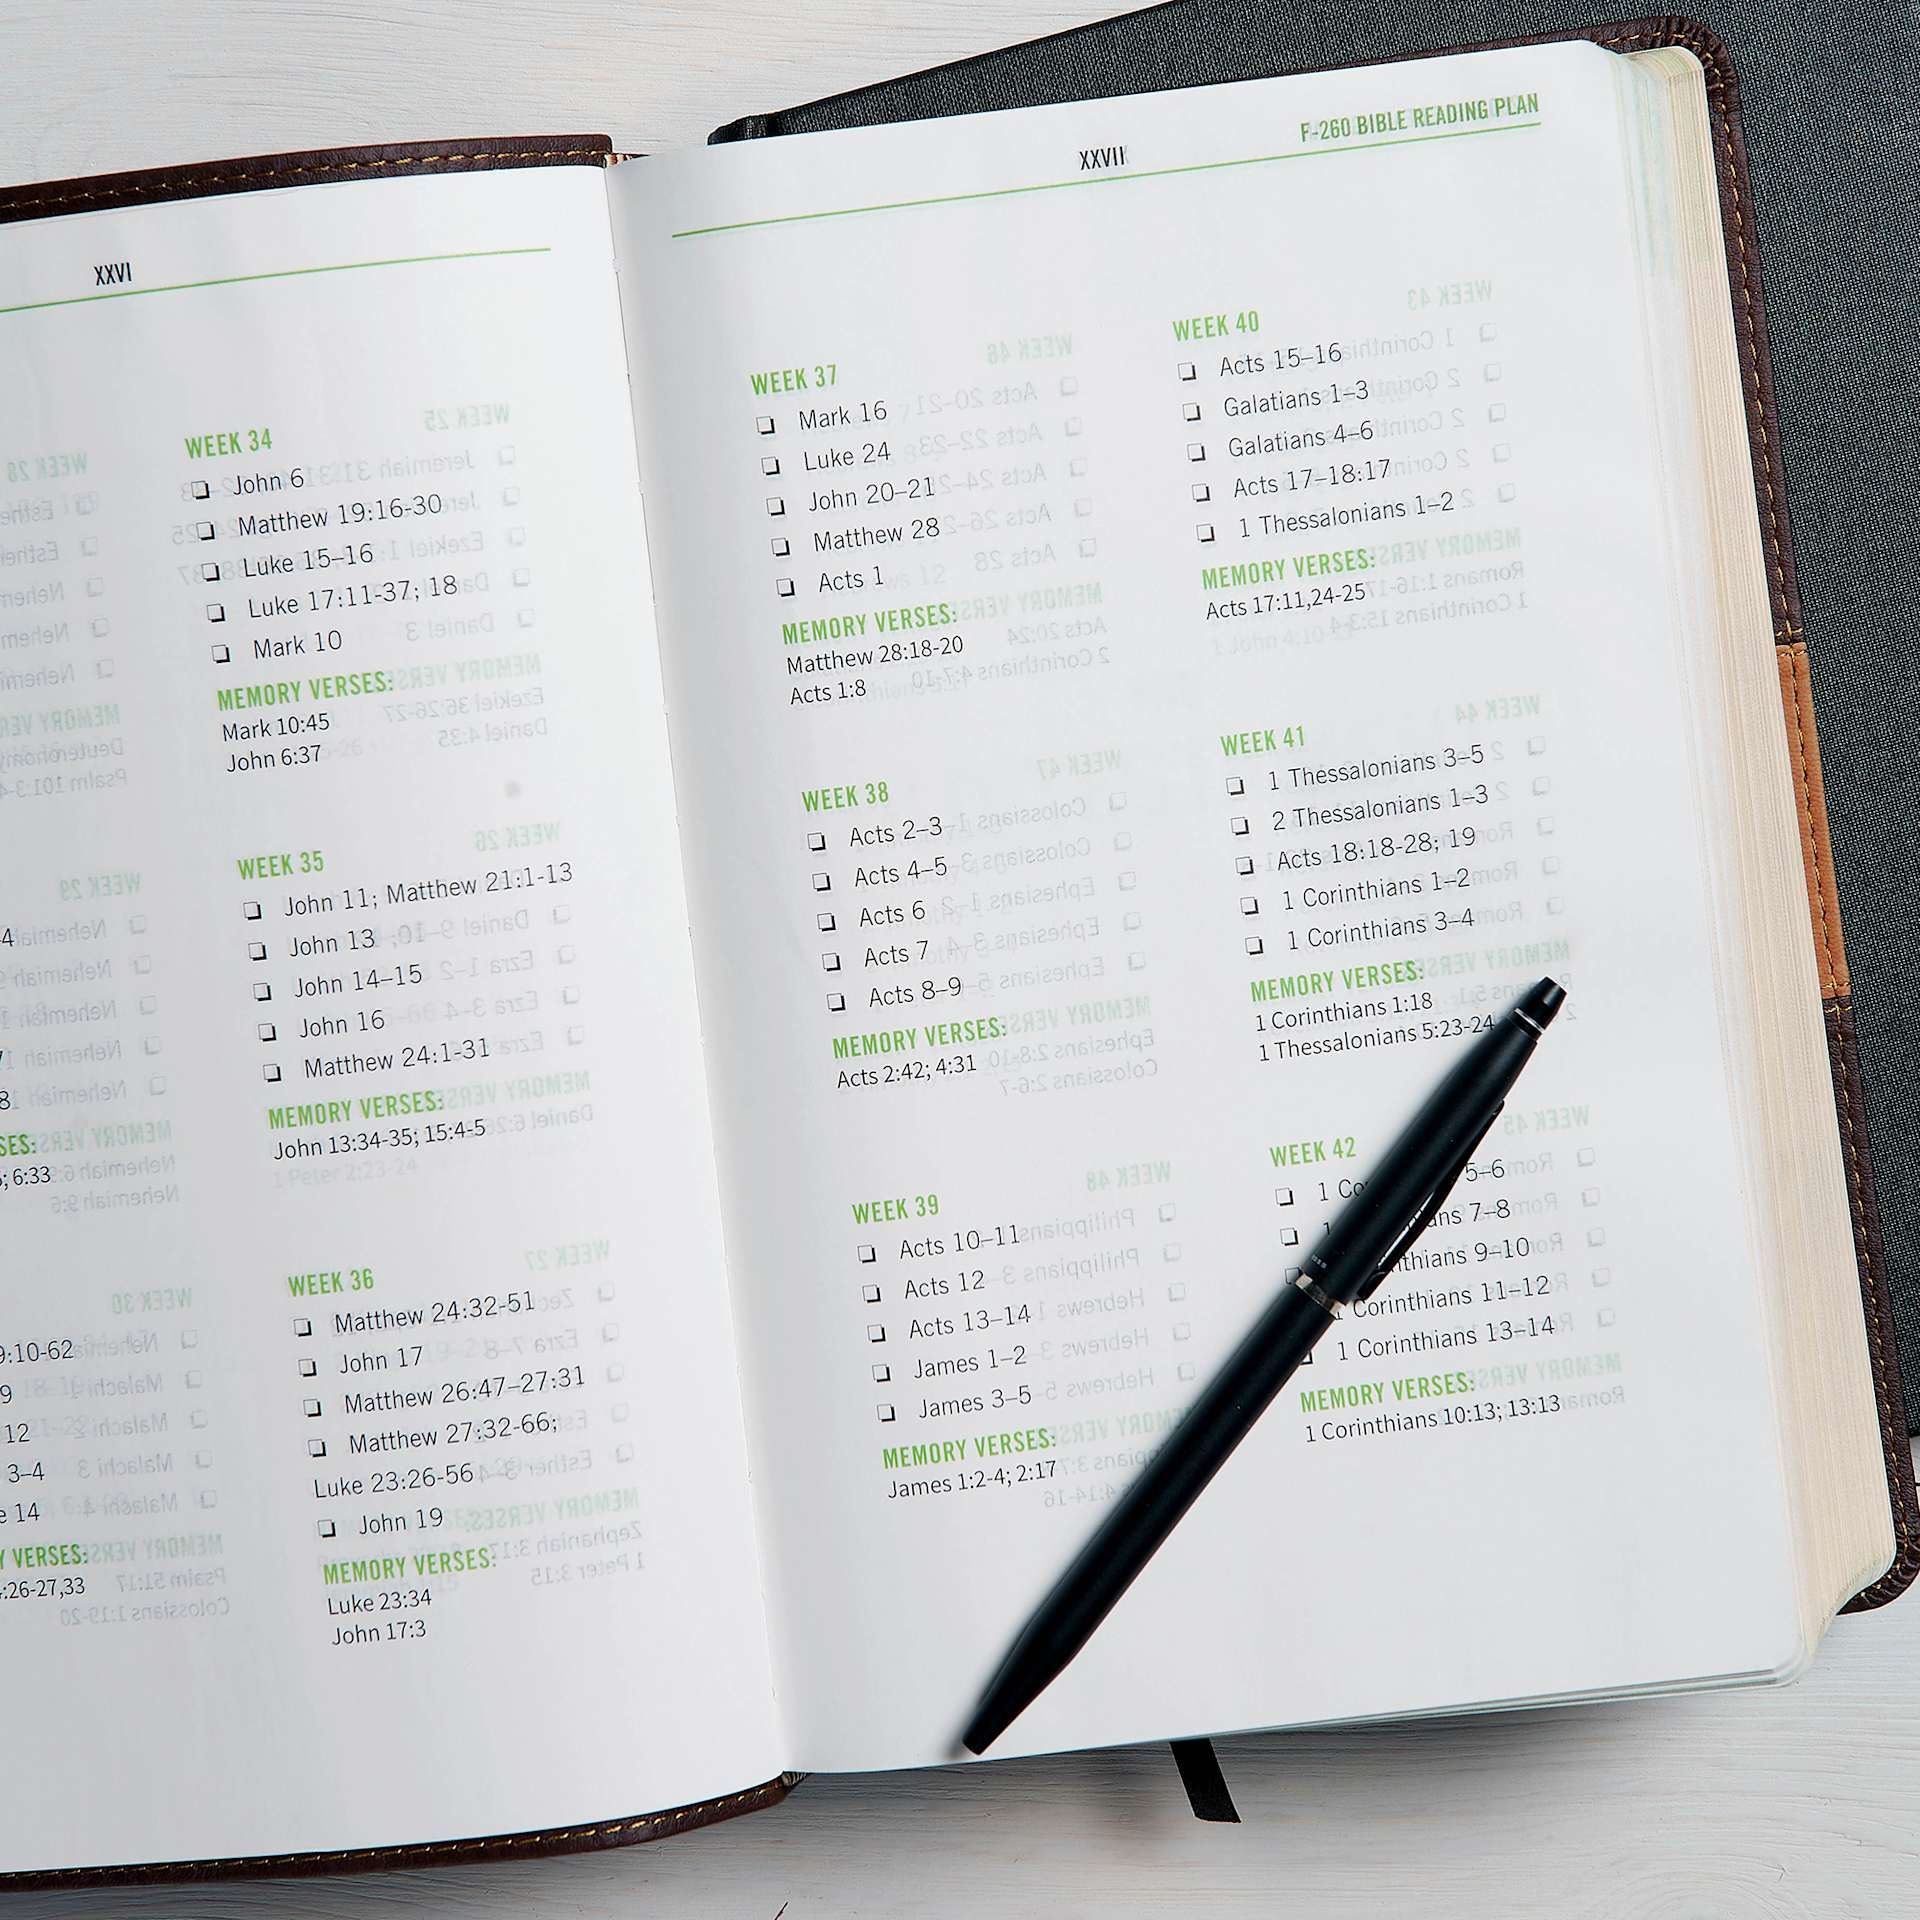 XXVI
4
8
SES:
; 6:33
9:10-62
9
12
3–4
14
VERSES:
:26-27,33
WEEK 34
John 6
Matthew 19:16-30
Luke 15–16
Luke 17:11-37; 18
Mark 10
MEMORY VERSES:
Mark 10:45
John 6:37
WEEK 35
John 11; Matthew 21:1-13
John 13
John 14–15
John 16
Matthew 24:1-31
MEMORY VERSES:
John 13:34-35; 15:4-5
WEEK 36
Matthew 24:32-51
John 17
Matthew 26:47–27:31
Matthew 27:32-66;
Luke 23:26-56
John 19
MEMORY VERSES:
Luke 23:34
John 17:3
XXVII
F-260 BIBLE READING PLAN
WEEK 37
Mark 16
Luke 24
John 20–21
Matthew 28
Acts 1
MEMORY VERSES:
Matthew 28:18-20
Acts 1:8
WEEK 38
Acts 2–3
Acts 4–5
Acts 6
Acts 7
Acts 8–9
MEMORY VERSES:
Acts 2:42; 4:31
WEEK 39
Acts 10–11
Acts 12
Acts 13–14
James 1–2
James 3–5
MEMORY VERSES:
James 1:2-4; 2:17
WEEK 40
Acts 15–16
Galatians 1–3
Galatians 4–6
Acts 17–18:17
1 Thessalonians 1–2
MEMORY VERSES:
Acts 17:11,24-25
WEEK 41
1 Thessalonians 3–5
2 Thessalonians 1–3
Acts 18:18-28; 19
1 Corinthians 1–2
1 Corinthians 3–4
MEMORY VERSES:
1 Corinthians 1:18
1 Thessalonians 5:23-24
WEEK 42
1 Co 5–6
1 ans 7–8
thians 9–10
1 Corinthians 11–12
1 Corinthians 13–14
MEMORY VERSES:
1 Corinthians 10:13; 13:13